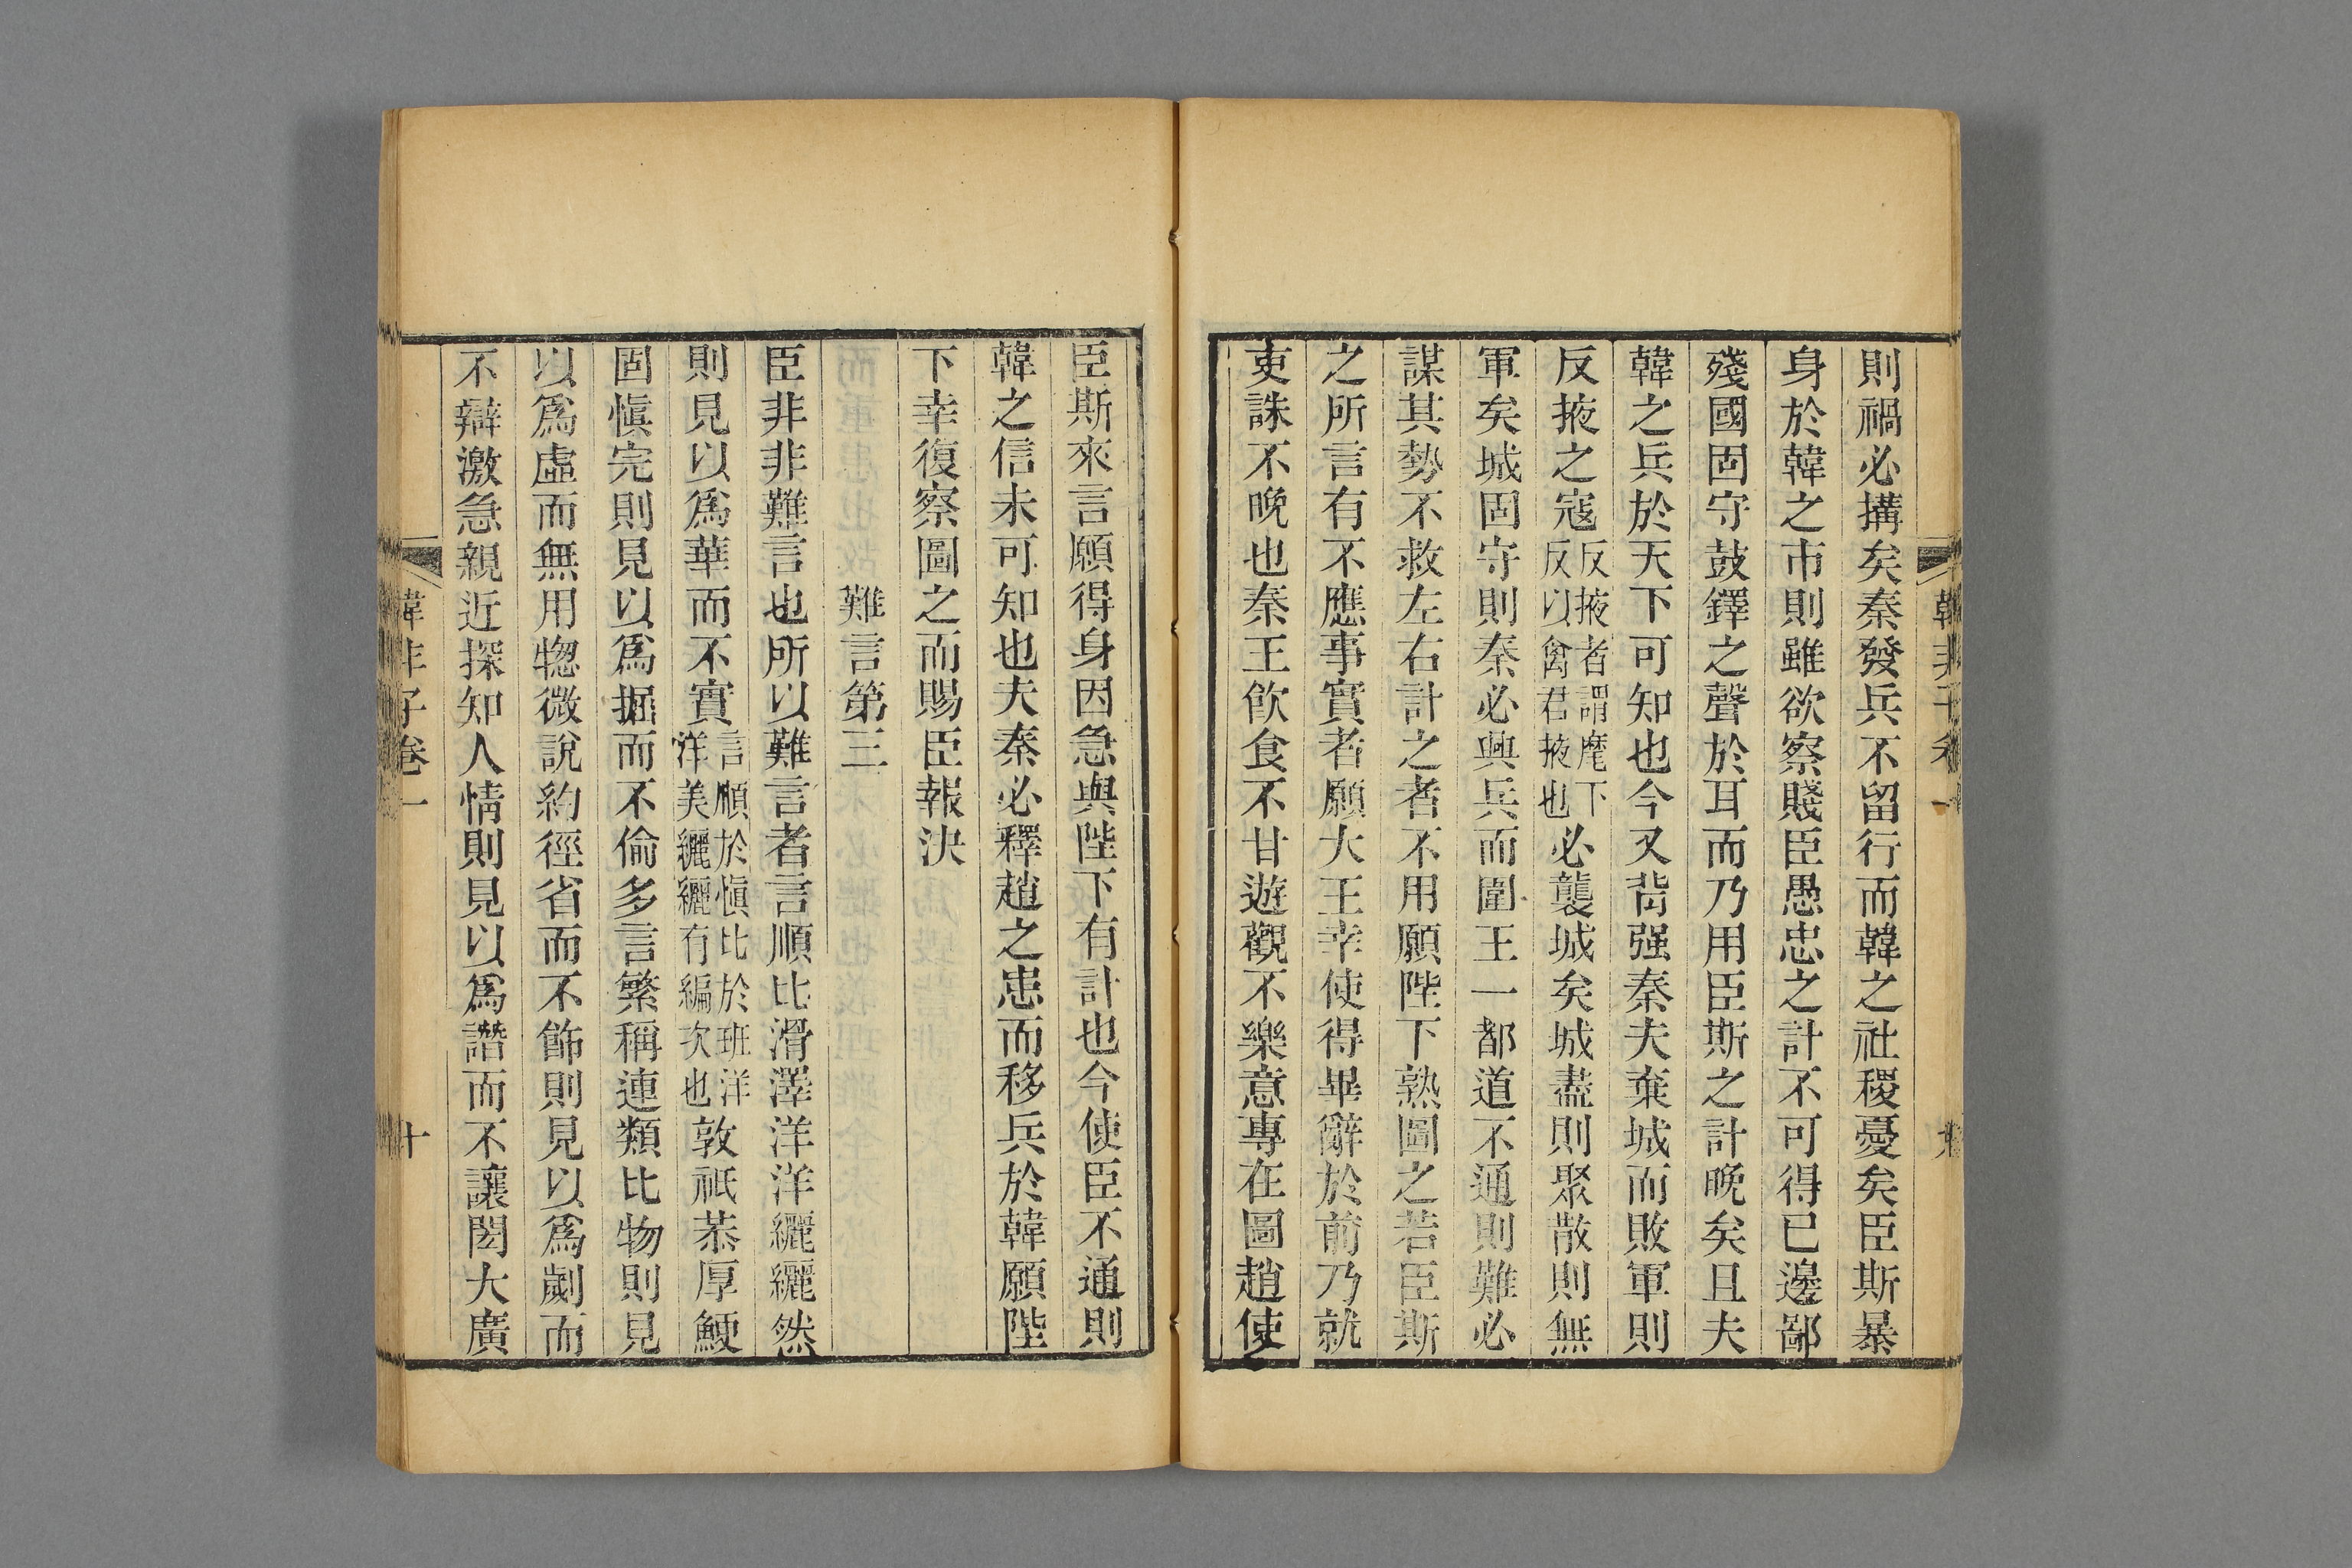 則禍必搆矣秦發兵不留行而韓之社稷憂矣臣斯暴
身於韓之市則雖欲察賤臣愚忠之計不可得已邊鄙
殘國固守鼓鐸之聲於耳而乃用臣斯之計晚矣且夫
韓之兵於天下可知也今又背强秦夫棄城而敗軍則
反掖之寇反掖者謂麾下反以禽君掖也必襲城矣城盡則聚散則無
軍矣城固守則秦必興兵而圍王一都道不通則難必
謀其勢不救左右計之者不用願陛下熟圖之若臣斯
之所言有不應事實者願大王幸使得畢辭於前乃就
吏誅不晚也秦王飲食不甘遊觀不樂意專在圖趙使
臣斯來言願得身因急與陛下有計也今使臣不通則
韓之信未可知也夫秦必釋趙之患而移兵於韓願陛
下幸復察圖之而賜臣報決
難言第三
臣非非難言也所以難言者言順比滑澤洋洋纚纚然
則見以爲華而不實言順於愼比於班洋洋美纚纚有編次也敦祇恭厚鯁
固愼完則見以爲掘而不倫多言繁稱連類比物則見
以爲虛而無用揔微說約徑省而不飾則見以爲劌而
不辯激急親近探知人情則見以爲譖而不讓閎大廣
韓非子卷一
十